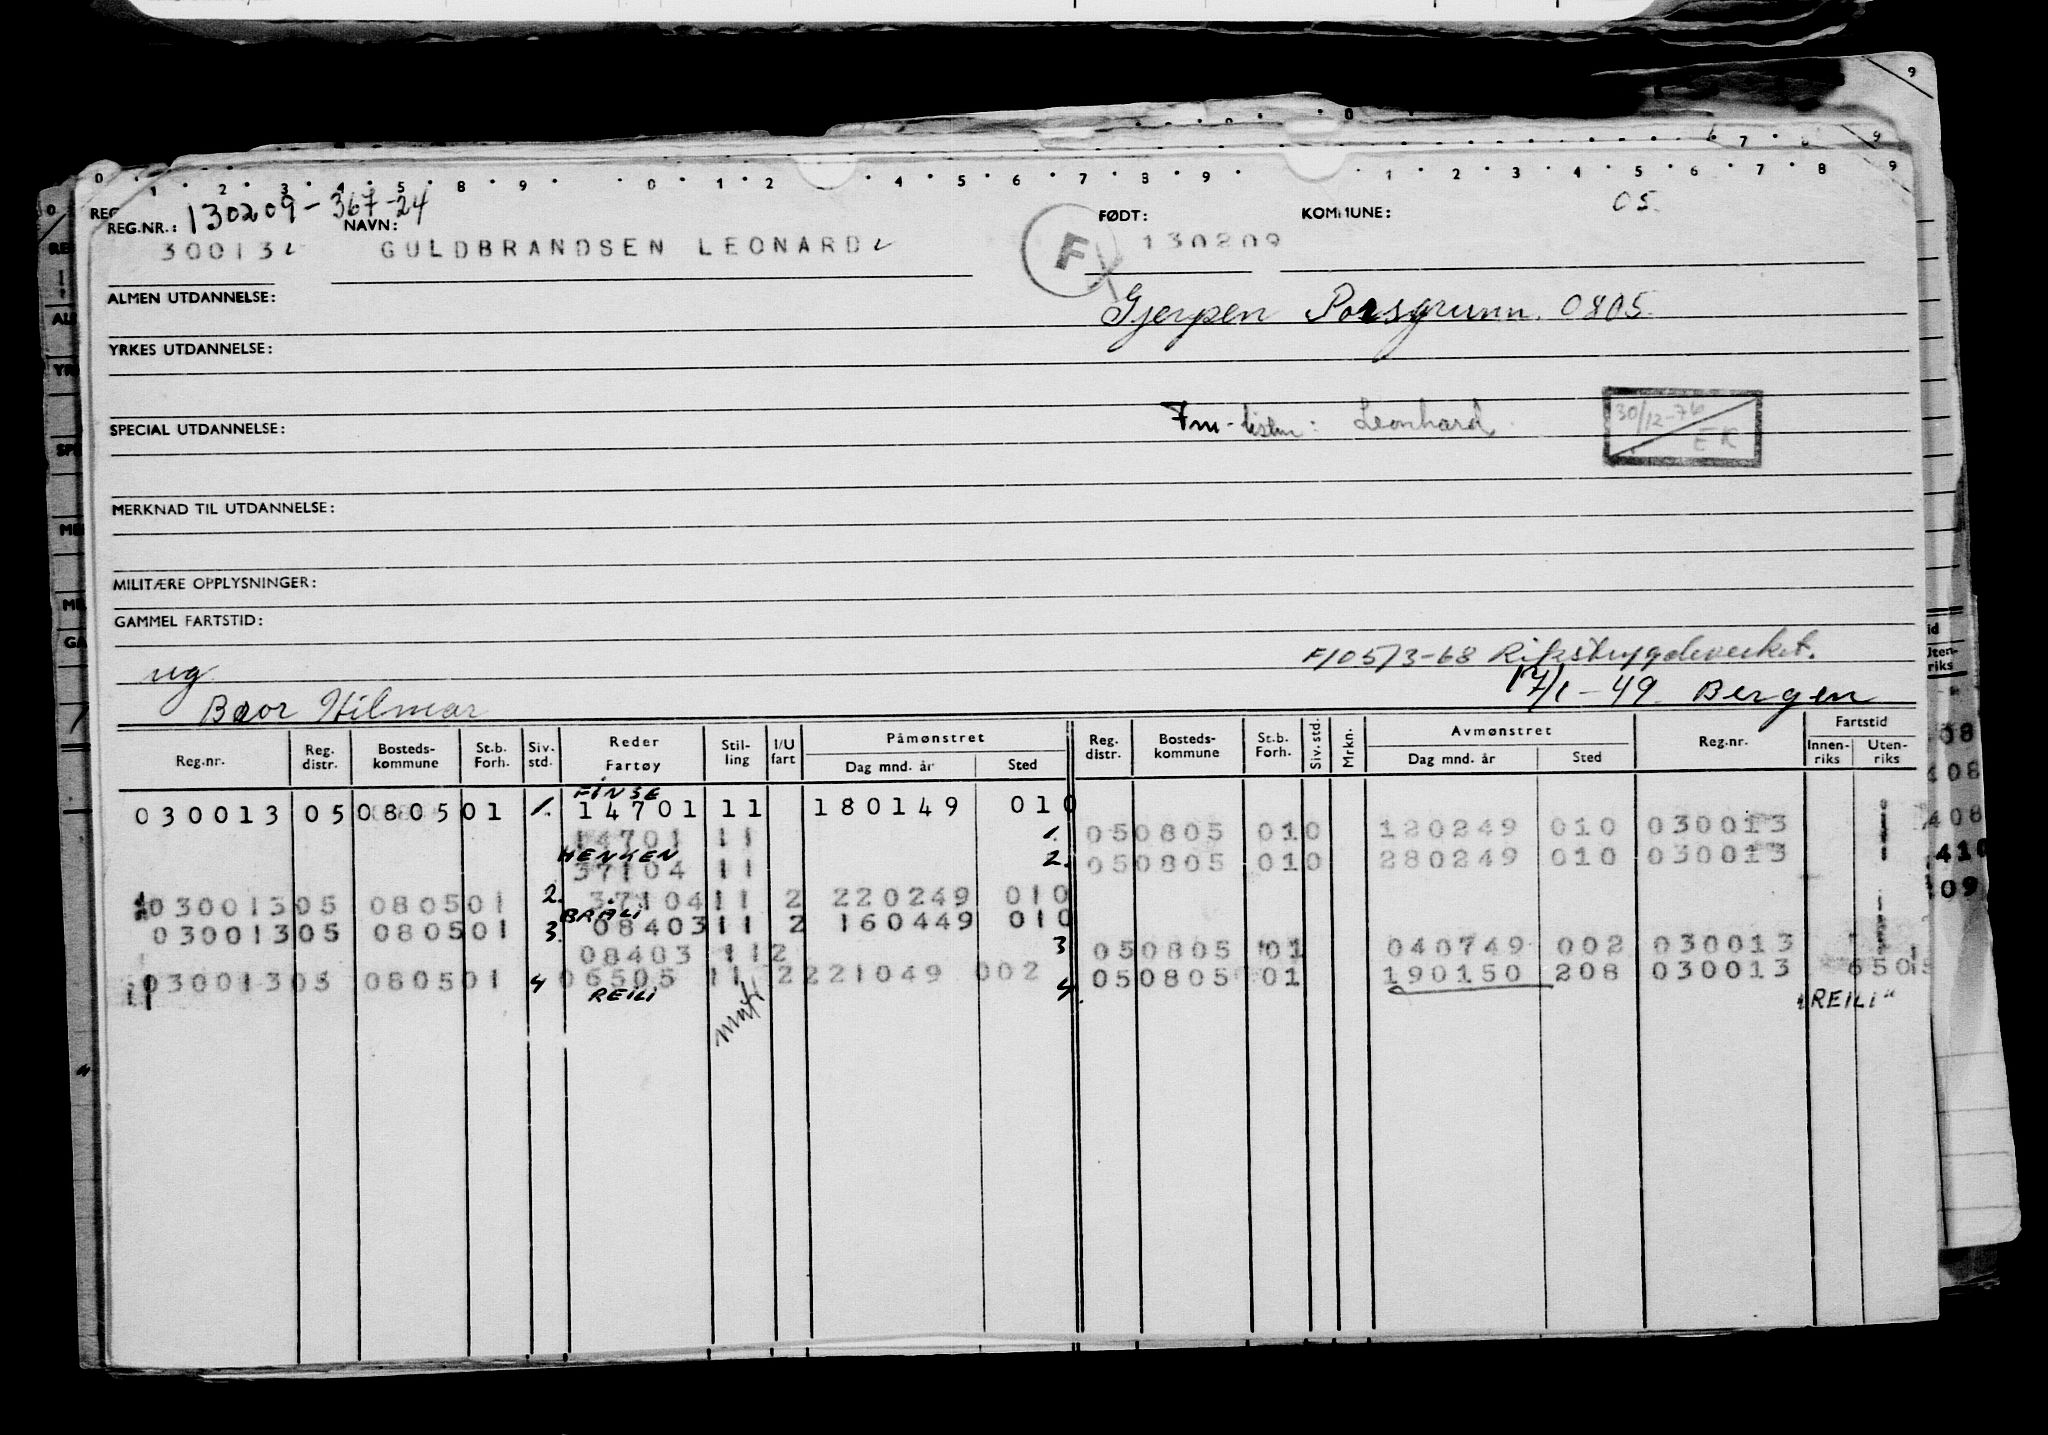 REG.NR.: 130209-367-24 NAVN: FØDT: KOMMUNE: 05.
30013 GULDBRANDSEN LEONARD F 130209
ALMEN UTDANNELSE: Gjerpen Porsgrunn. 0805.
YRKES UTDANNELSE:
SPECIAL UTDANNELSE: Leonhard. 30/12-76 EK
MERKNAD TIL UTDANNELSE:
MILITÆRE OPPLYSNINGER:
GAMMEL FARTSTID:
ug F/05/3-68 Rikstrygdeverket.
Hilmar 17/1-49 Bergen
Reg.nr. Reg. distr. Bosteds- kommune St.b. Forh. Siv. std. Reder Fartøy Stil- ling I/U fart Påmønstret Dag mnd. år Sted Reg. distr. Bosteds- kommune St.b. Forh. Siv. std. Mrkn. Avmønstret Dag mnd. år Sted Reg.nr. Fartstid Innen- riks Uten- riks
FINSE
030013 05 0805 01 1. 14701 11 180149 010
14701 11 1. 05 0805 010 120249 010 030013
HENKEN
37104 11 2. 05 0805 010 280249 010 030013
030013 05 0805 01 2. 37104 11 2 220249 010
BRALI
030013 05 0805 01 3. 08403 11 2 160449 010
08403 11 2 3 05 0805 01 040749 002 030013
030013 05 0805 01 4 06505 11 2 221049 002 4. 05 0805 01 190150 208 030013 6505
REILI "REILI"
matr